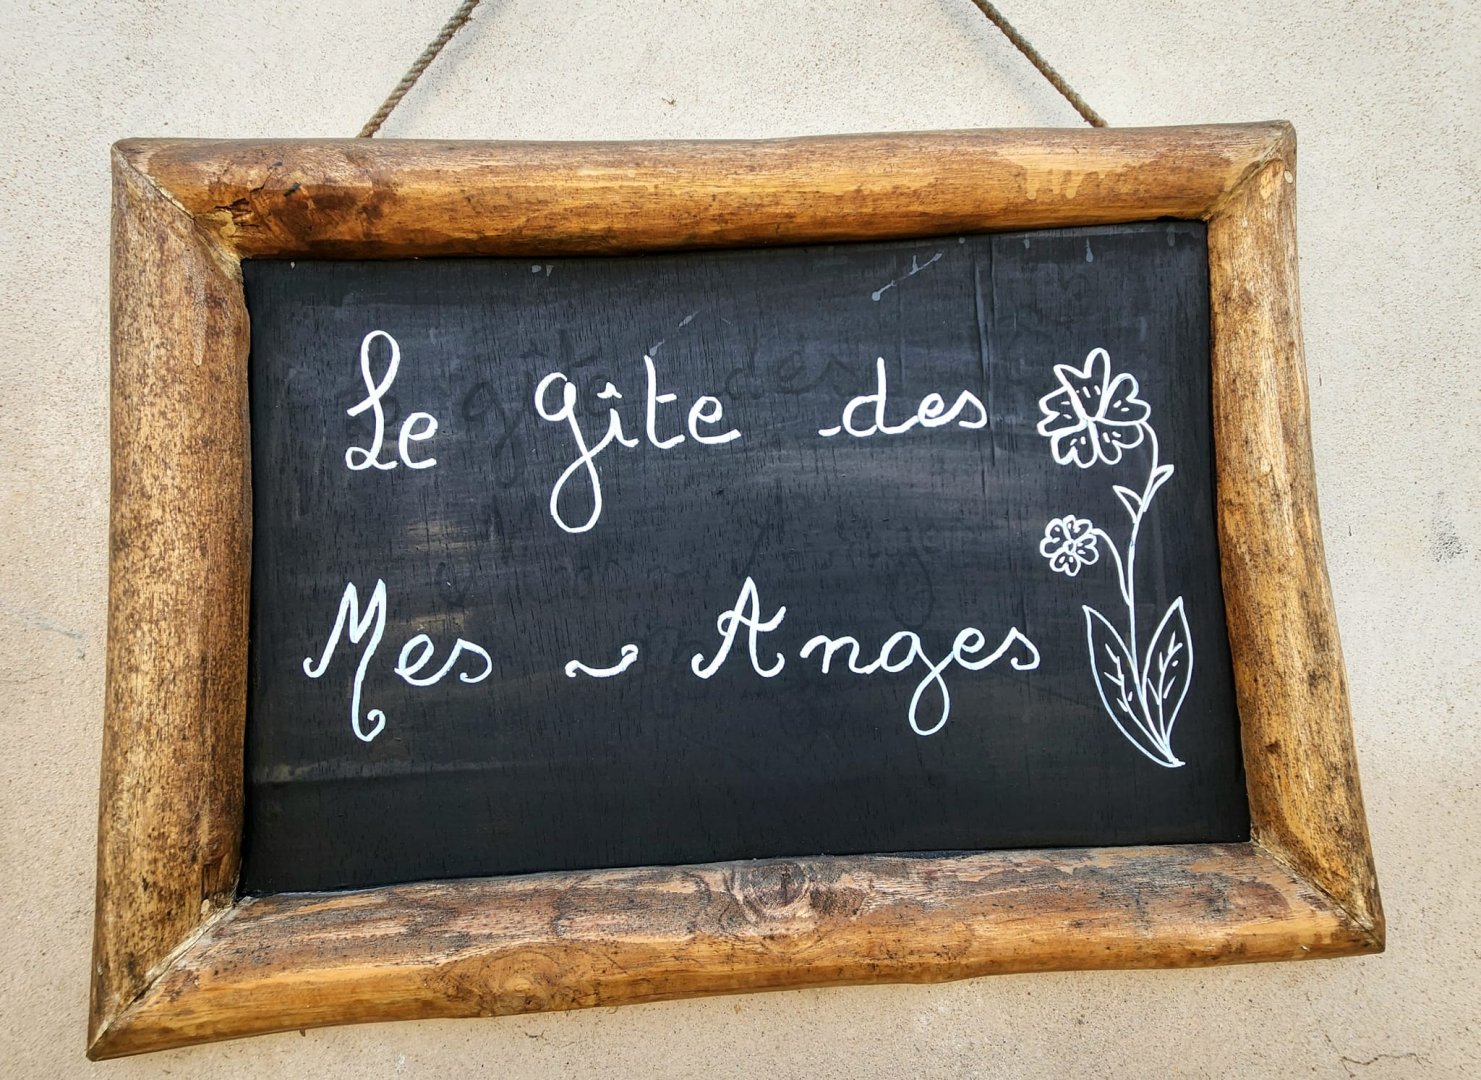 Le gîte des
Mes ~ Anges